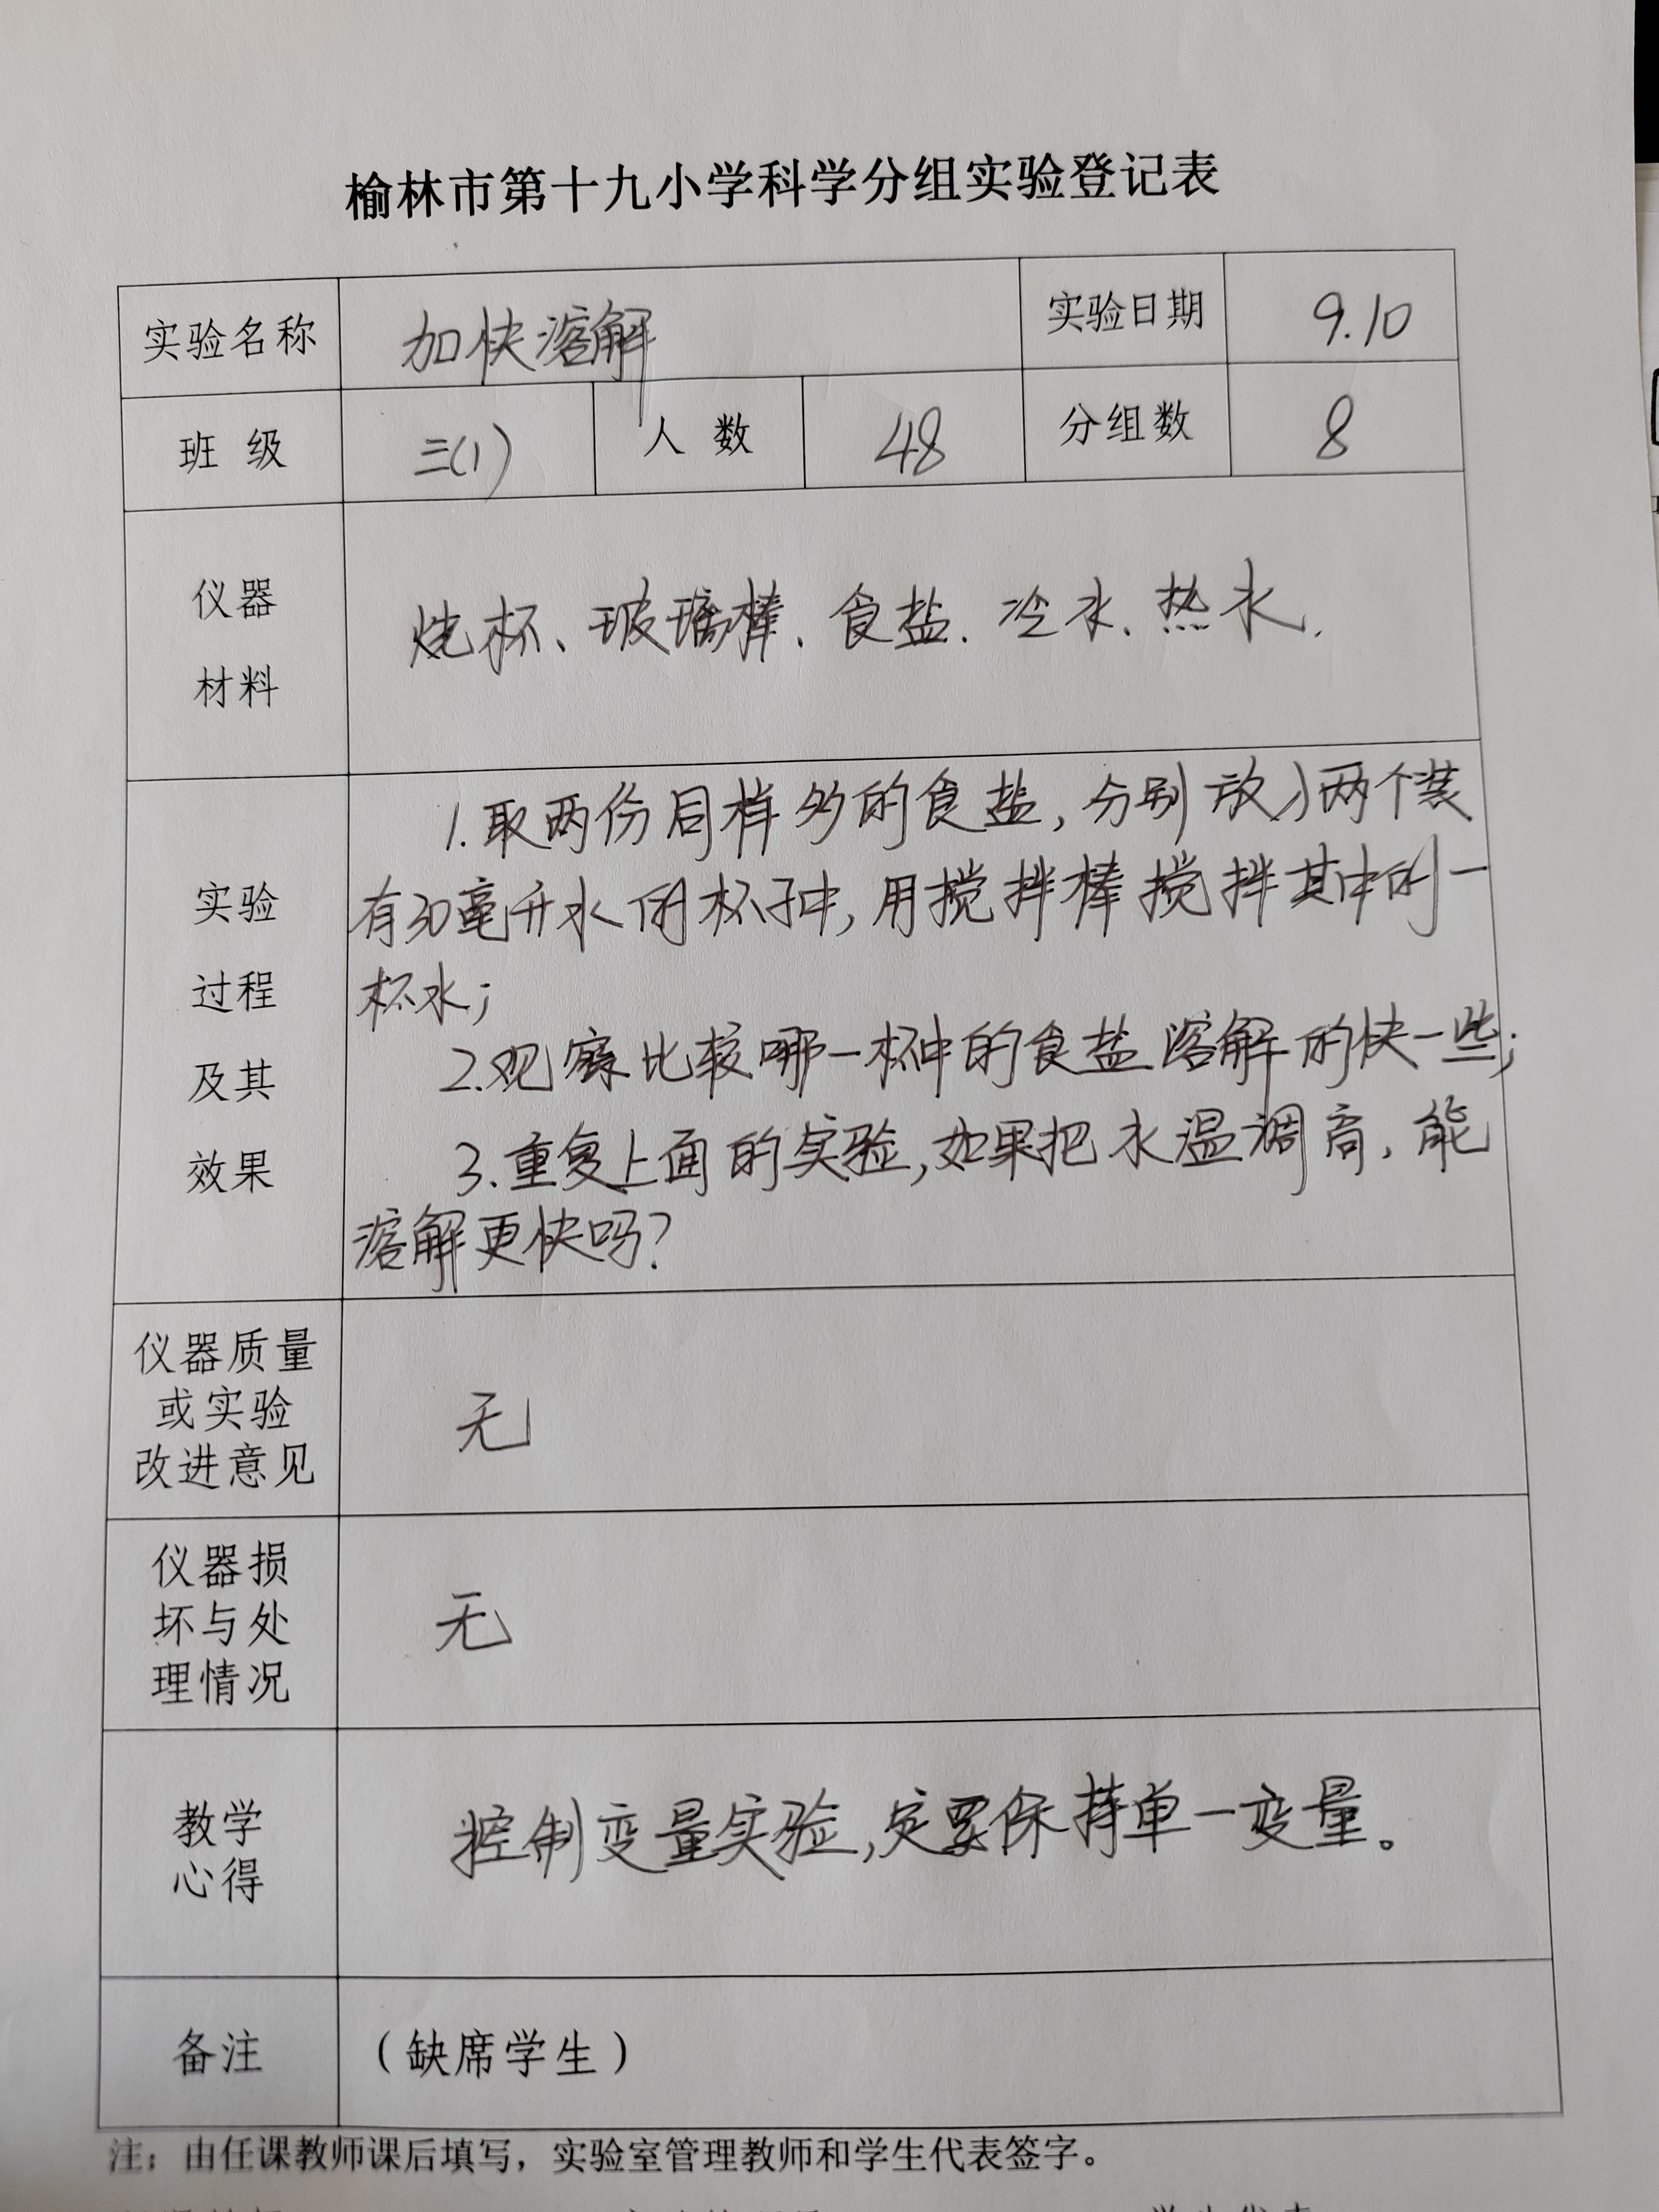 榆林市第十九小学科学分组实验登记表
实验名称 加快溶解 实验日期 9.10
班 级 三(1) 人 数 48 分组数 8
仪器
材料
烧杯、玻璃棒、食盐、冷水、热水.
实验
过程
及其
效果
1.取两份同样多的食盐,分别放入两个装
有30毫升水的杯子中,用搅拌棒搅拌其中的一
杯水;
2.观察比较哪一杯中的食盐溶解的快一些;
3.重复上面的实验,如果把水温调高,能
溶解更快吗?
仪器质量
或实验
改进意见
无
仪器损
坏与处
理情况
无
教学
心得
控制变量实验,定要保持单一变量。
备注 (缺席学生)
注：由任课教师课后填写，实验室管理教师和学生代表签字。